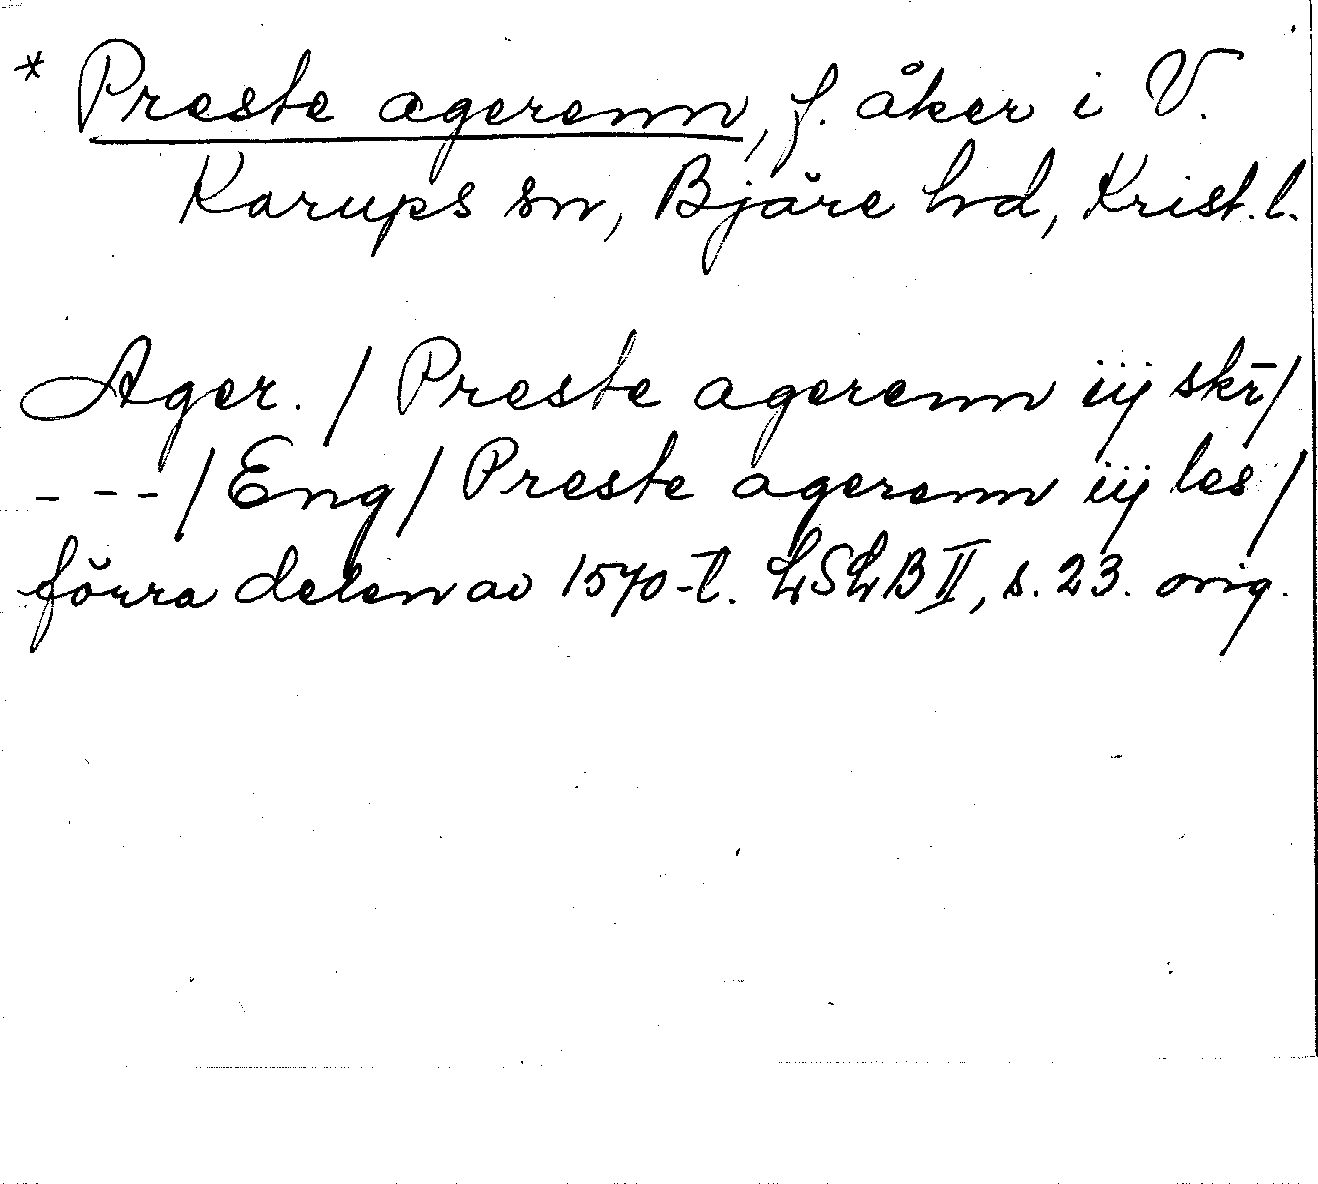 * Preste agerenn, f. åker i V.
Karups sn, Bjäre hd, Krist. l.
Ager. / Preste agerenn iij skr̄/
- - - / Eng / Preste agerenn iij les /
förra delen av 1570-t. LSLB II, s. 23. orig.